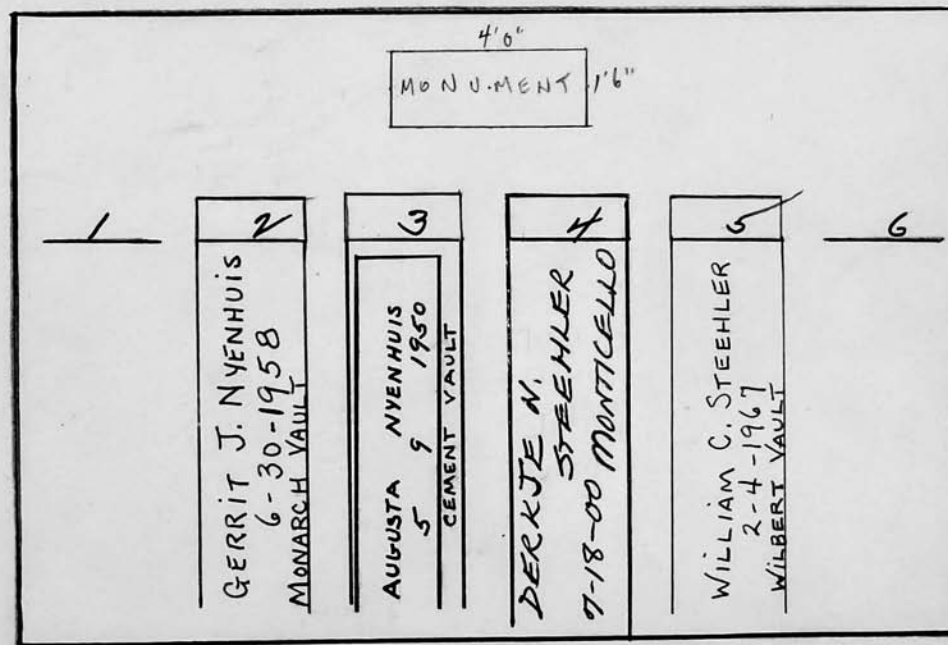 4'0"
MONUMENT 1'6"
1
2
3
4
5
6
GERRIT J. NYENHUIS
6-30-1958
MONARCH VAULT
AUGUSTA NYENHUIS
5 9 1950
CEMENT VAULT
DERKJE N.
STEEHLER
7-18-00 MONTICELLO
WILLIAM C. STEEHLER
2-4-1967
WILBERT VAULT